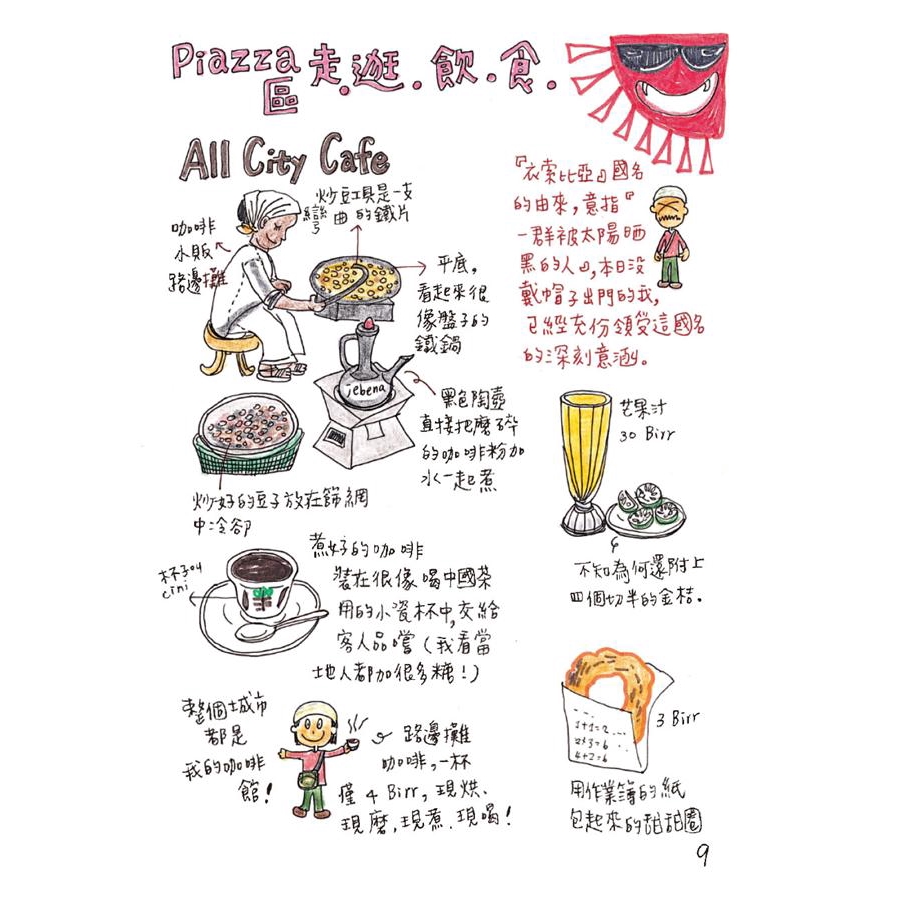 Piazza 走.逛.飲.食.
區
All City Cafe
咖啡
小販
路邊攤
炒豆工具是一支
彎曲的鐵片
平底,
看起來很
像盤子的
鐵鍋
jebena
黑色陶壺
直接把磨碎
的咖啡粉加
水一起煮
炒好的豆子放在篩網
中冷卻
杯子叫
cini
煮好的咖啡
裝在很像喝中國茶
用的小瓷杯中,交給
客人品嚐(我看當
地人都加很多糖!)
整個城市
都是
我的咖啡
館!
路邊攤
咖啡,一杯
僅4 Birr,現烘、
現磨,現煮、現喝!
『衣索比亞』國名
的由來,意指『
一群被太陽晒
黑的人』,本日沒
戴帽子出門的我,
已經充份領受這國名
的深刻意涵。
芒果汁
30 Birr
不知為何還附上
四個切半的金桔.
1+1=2
2×3=6
4+2=6
3 Birr
用作業簿的紙
包起來的甜甜圈
9